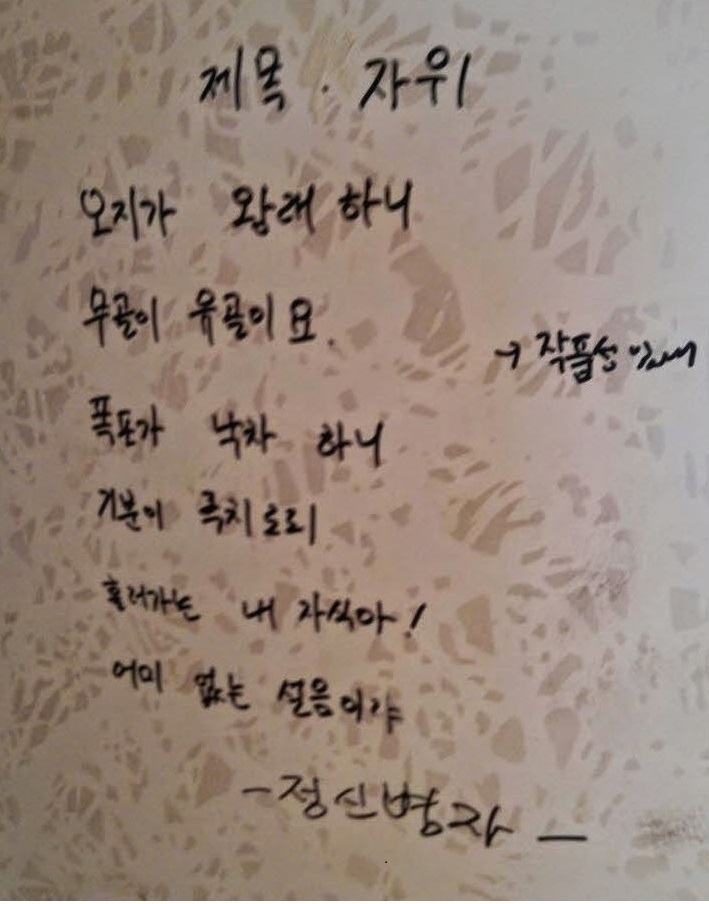 제목 · 자위
오지가 왕래 하니
무골이 유골이요.
→ 작품성 있네
폭포가 낙차 하니
기분이 극치로회
흘러가는 내 자식아!
어미 없는 설음이야
- 정신병자 -